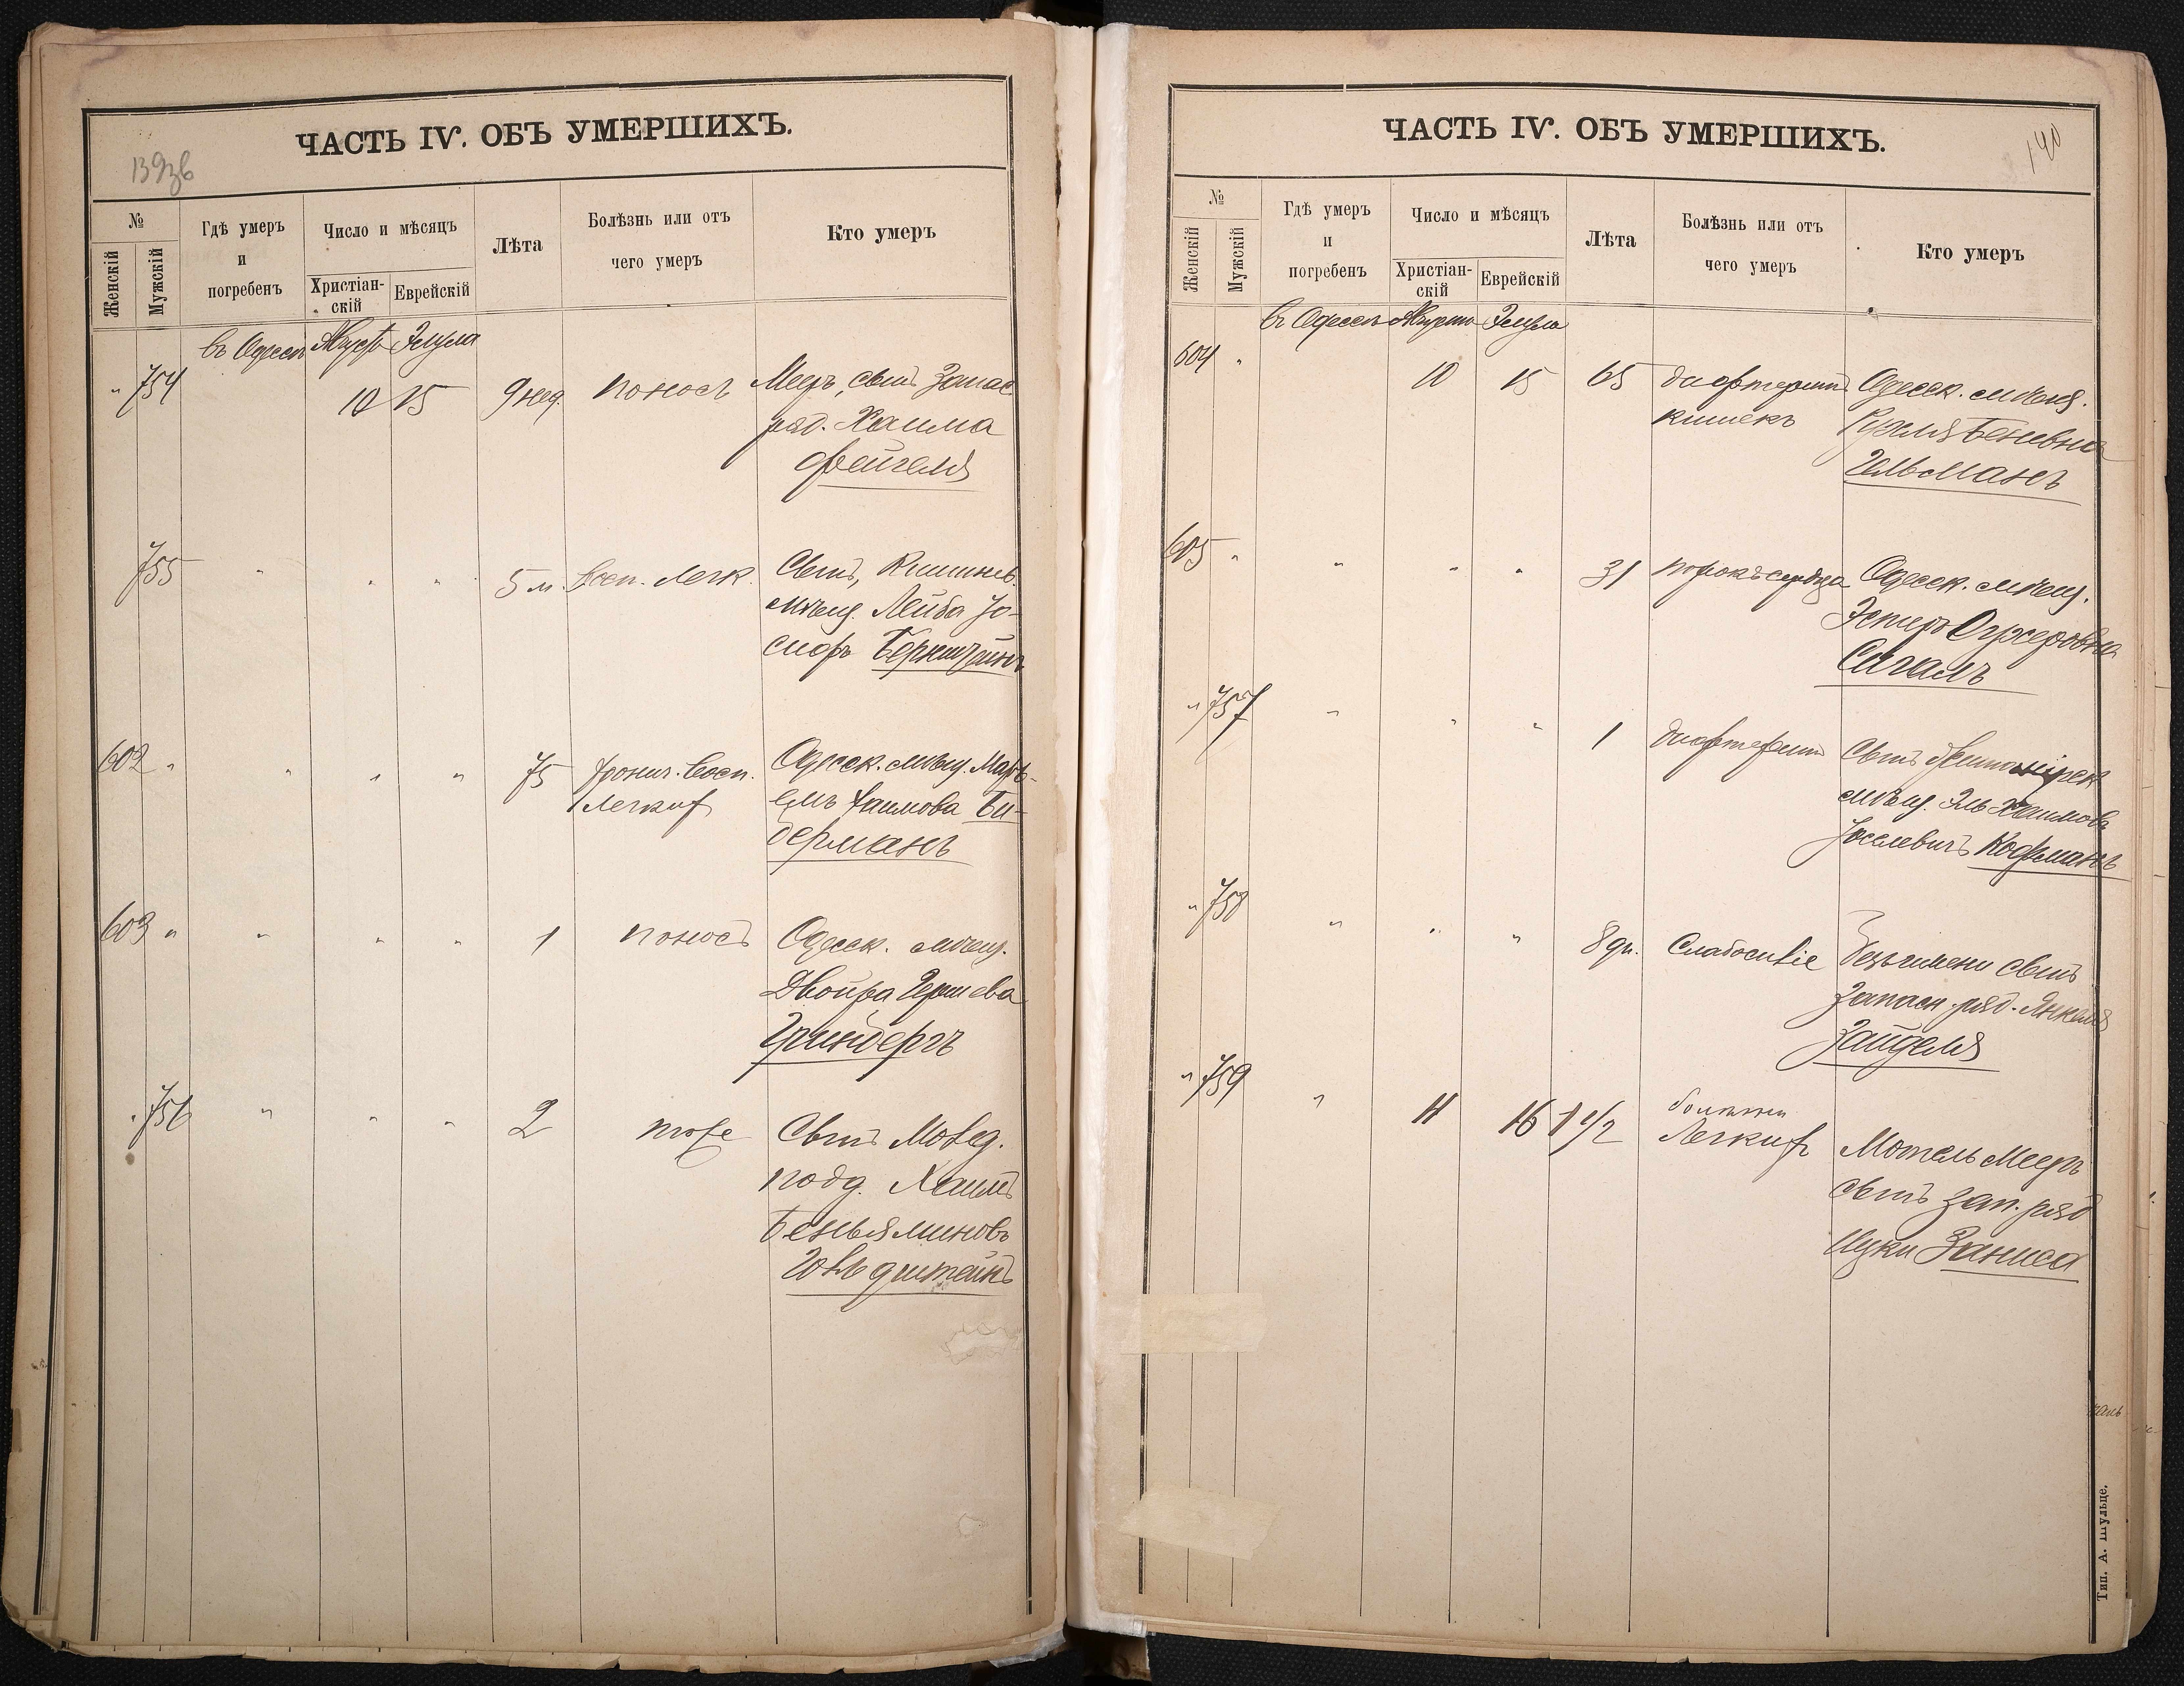 ЧАСТЬ IV. ОБЪ УМЕРШИХЪ.
139зв
№
Женскій
Мужскій
Гдѣ умеръ
и
погребенъ
Число и мѣсяцъ
Христіан-
скій
Еврейскій
Лѣта
Болѣзнь или отъ
чего умеръ
Кто умеръ
въ Одессѣ Августъ Элула
" 754 10 15 9 нед. поносъ Мееръ, сынъ Запас.
ряд. Хаима
Фейгеля
755 " " " 5 м. Восп. Легк. Сынъ, Кишинев.
мѣщ. Лейба Іо-
сифъ Бернштейнъ
602 " " " " 75 Хронич. Восп. Одесск. мѣщ.
Легкихъ Хаимова Би-
берманъ
603 " " " " 1 поносъ Одесск. мѣщ.
Двойра Гершева
Гринбергъ
" 756 " " " 2 тоже Сынъ
подд. Хаимъ
Беньяминовъ
Гольдштейнъ
ЧАСТЬ IV. ОБЪ УМЕРШИХЪ.
140
№
Женскій
Мужскій
Гдѣ умеръ
и
погребенъ
Число и мѣсяцъ
Христіан-
скій
Еврейскій
Лѣта
Болѣзнь или отъ
чего умеръ
Кто умеръ
въ Одессѣ Августа Элула
604 " 10 15 65 дифтеритъ Одесск. мѣщ.
кишекъ Рухля Беневна
Гельманъ
605 " " " " 31 порокъ сердца Одесск. мѣщ.
Эстеръ
Сигалъ
" 757 " " " 1 дифтеритъ Сынъ Житомірск
мѣщ. Эль Хаимовъ
Іоселевичъ Кофманъ
" 758 " " " 8 дн. Слабосиліе Безъ имени сынъ
Запасн. ряд. Янкеля
Зайделя
" 759 " 11 16 1 1/2 болѣзни
Легкихъ Мотель Мееръ
сынъ зап. ряд
Ицки Заниса
Тип. А. Шульце.